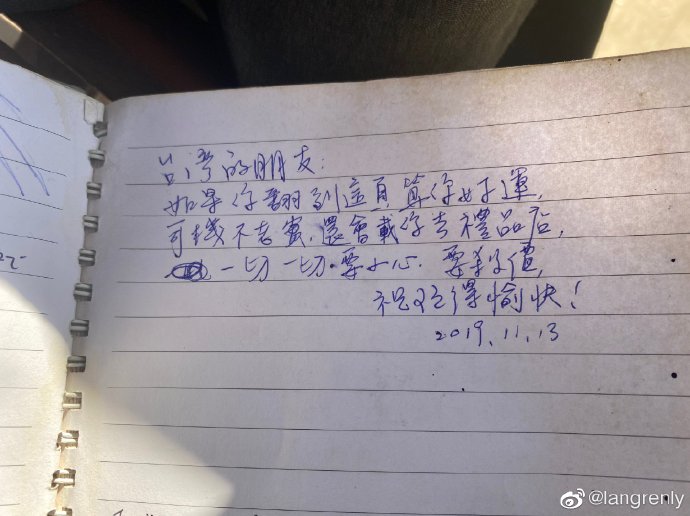 台灣的朋友:
如果你翻到這頁算你好運,
司機不老實,還會載你去禮品店,
一切一切要小心.要殺價,
祝玩得愉快!
2019.11.13
@langrenly